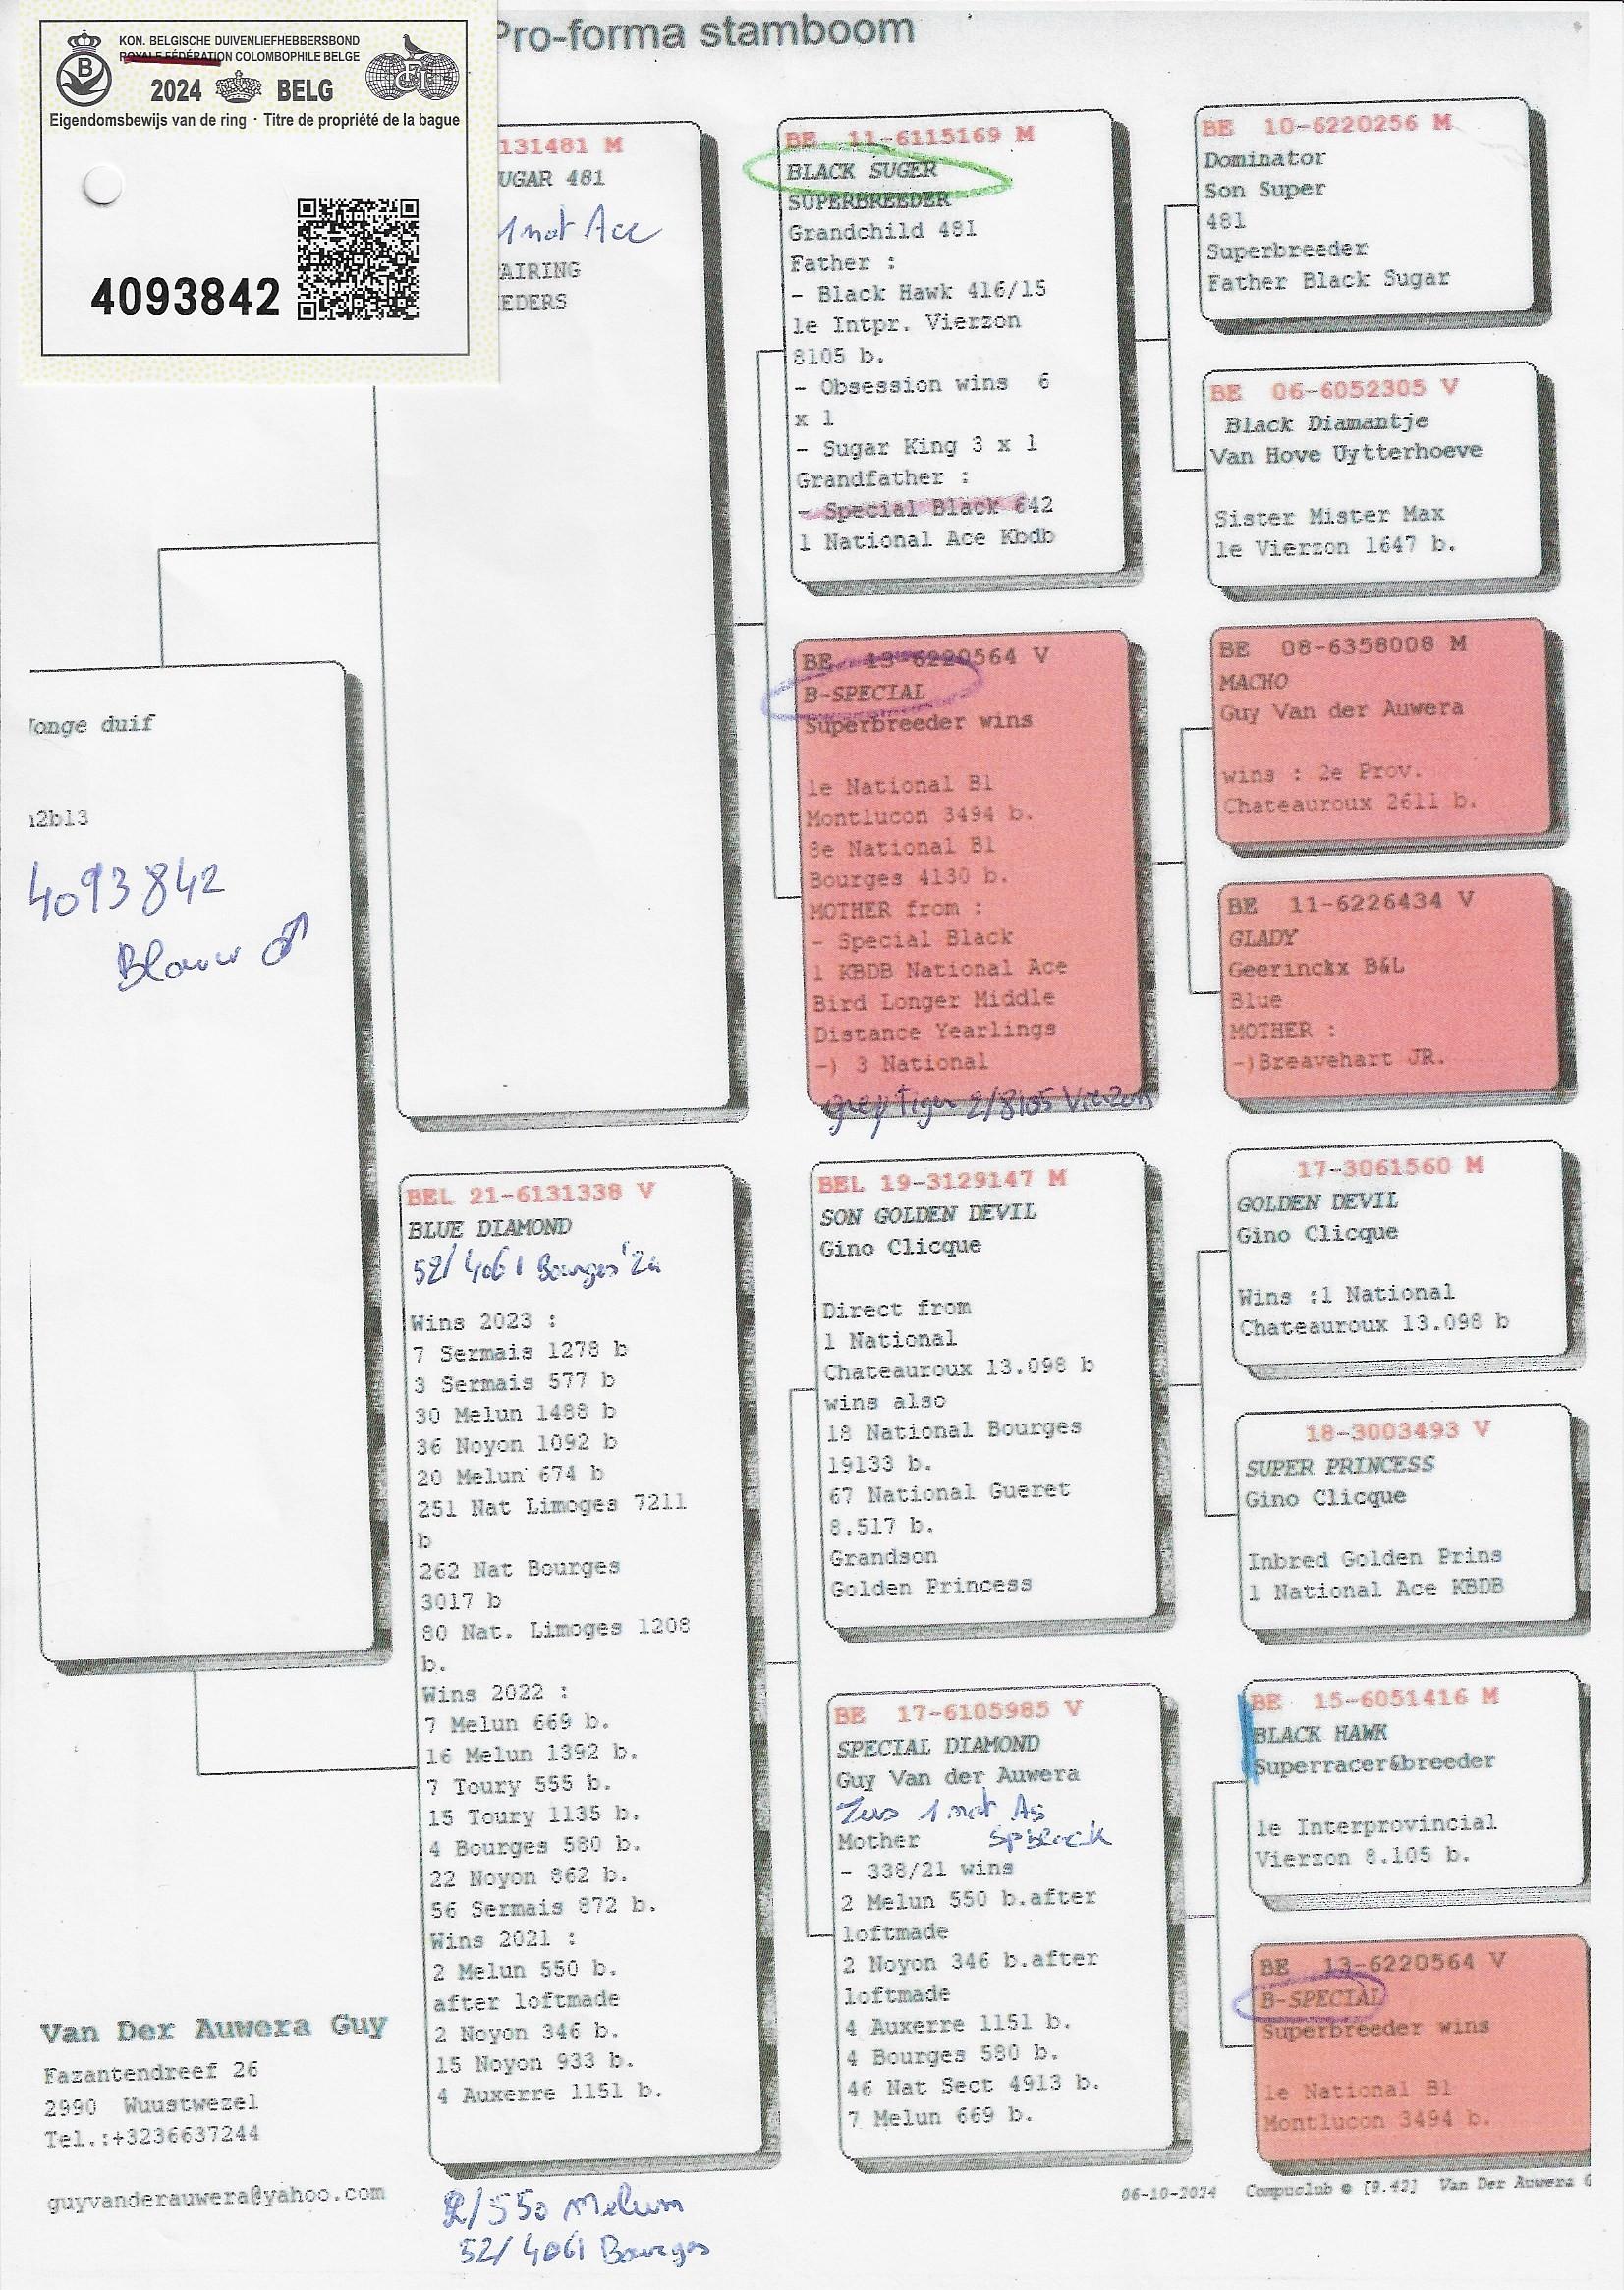 KON. BELGISCHE DUIVENLIEFHEBBERSBOND
ROYALE FÉDÉRATION COLOMBOPHILE BELGE
B
FCI
2024 BELG
Eigendomsbewijs van de ring · Titre de propriété de la bague
4093842
Pro-forma stamboom
onge duif
2b13
4093842
Blauw ♂
131481 M
UGAR 481
1 nat Ace
AIRING
EDERS
BEL 21-6131338 V
BLUE DIAMOND
52/4061 Bourges '24
Wins 2023 :
7 Sermais 1278 b
3 Sermais 577 b
30 Melun 1488 b
36 Noyon 1092 b
20 Melun 674 b
251 Nat Limoges 7211
b
262 Nat Bourges
3017 b
80 Nat. Limoges 1208
b.
Wins 2022 :
7 Melun 669 b.
16 Melun 1392 b.
7 Toury 555 b.
15 Toury 1135 b.
4 Bourges 580 b.
22 Noyon 862 b.
56 Sermais 872 b.
Wins 2021 :
2 Melun 550 b.
after loftmade
2 Noyon 346 b.
15 Noyon 933 b.
4 Auxerre 1151 b.
2/550 Melun
52/4061 Bourges
BE 11-6115169 M
BLACK SUGER
SUPERBREEDER
Grandchild 481
Father :
- Black Hawk 416/15
1e Intpr. Vierzon
8105 b.
- Obsession wins 6
x 1
- Sugar King 3 x 1
Grandfather :
- Special Black 642
1 National Ace Kbdb
BE 13-6220564 V
B-SPECIAL
Superbreeder wins
1e National B1
Montlucon 3494 b.
8e National B1
Bourges 4130 b.
MOTHER from :
- Special Black
1 KBDB National Ace
Bird Longer Middle
Distance Yearlings
-) 3 National
grey Tiger 2/8105 Vierzon
BEL 19-3129147 M
SON GOLDEN DEVIL
Gino Clicque
Direct from
1 National
Chateauroux 13.098 b
wins also
18 National Bourges
19133 b.
67 National Gueret
8.517 b.
Grandson
Golden Princess
BE 17-6105985 V
SPECIAL DIAMOND
Guy Van der Auwera
Zus 1 nat As
Sp Black
Mother
- 338/21 wins
2 Melun 550 b.after
loftmade
2 Noyon 346 b.after
loftmade
4 Auxerre 1151 b.
4 Bourges 580 b.
46 Nat Sect 4913 b.
7 Melun 669 b.
BE 10-6220256 M
Dominator
Son Super
481
Superbreeder
Father Black Sugar
BE 06-6052305 V
Black Diamantje
Van Hove Uytterhoeve
Sister Mister Max
1e Vierzon 1647 b.
BE 08-6358008 M
MACHO
Guy Van der Auwera
wins : 2e Prov.
Chateauroux 2611 b.
BE 11-6226434 V
GLADY
Geerinckx B&L
Blue
MOTHER :
-)Breavehart JR.
17-3061560 M
GOLDEN DEVIL
Gino Clicque
Wins :1 National
Chateauroux 13.098 b
18-3003493 V
SUPER PRINCESS
Gino Clicque
Inbred Golden Prins
1 National Ace KBDB
BE 15-6051416 M
BLACK HAWK
Superracer&breeder
1e Interprovincial
Vierzon 8.105 b.
BE 13-6220564 V
B-SPECIAL
Superbreeder wins
1e National B1
Montlucon 3494 b.
Van Der Auwera Guy
Fazantendreef 26
2990 Wuustwezel
Tel.:+3236637244
guyvanderauwera@yahoo.com
06-10-2024 Compuclub © [9.42] Van Der Auwera G